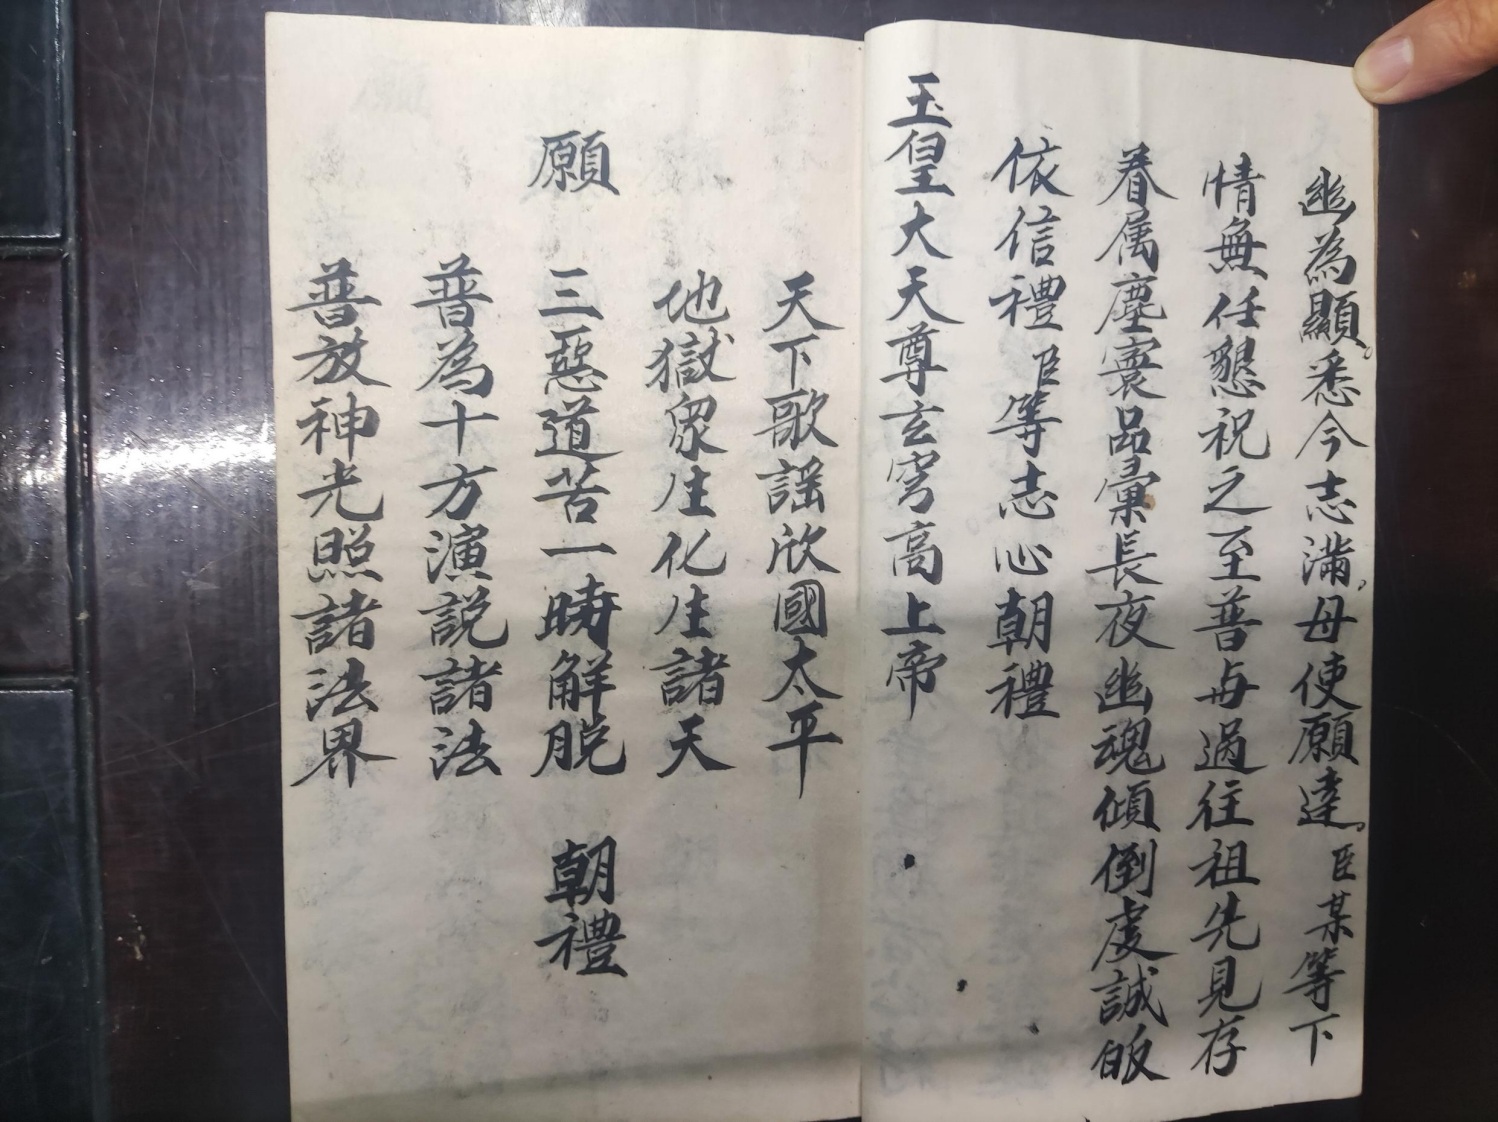 幽為顯。悉令志滿，毋使願違。臣某等下
情無任懇祝之至普與過往祖先見存
眷属塵寰品彙長夜幽魂傾倒虔誠皈
依信禮臣等志心朝禮
玉皇大天尊玄穹高上帝
天下歌謠欣國太平
地獄眾生化生諸天
願 三惡道苦一時解脫 朝禮
普為十方演説諸法
普放神光照諸法界